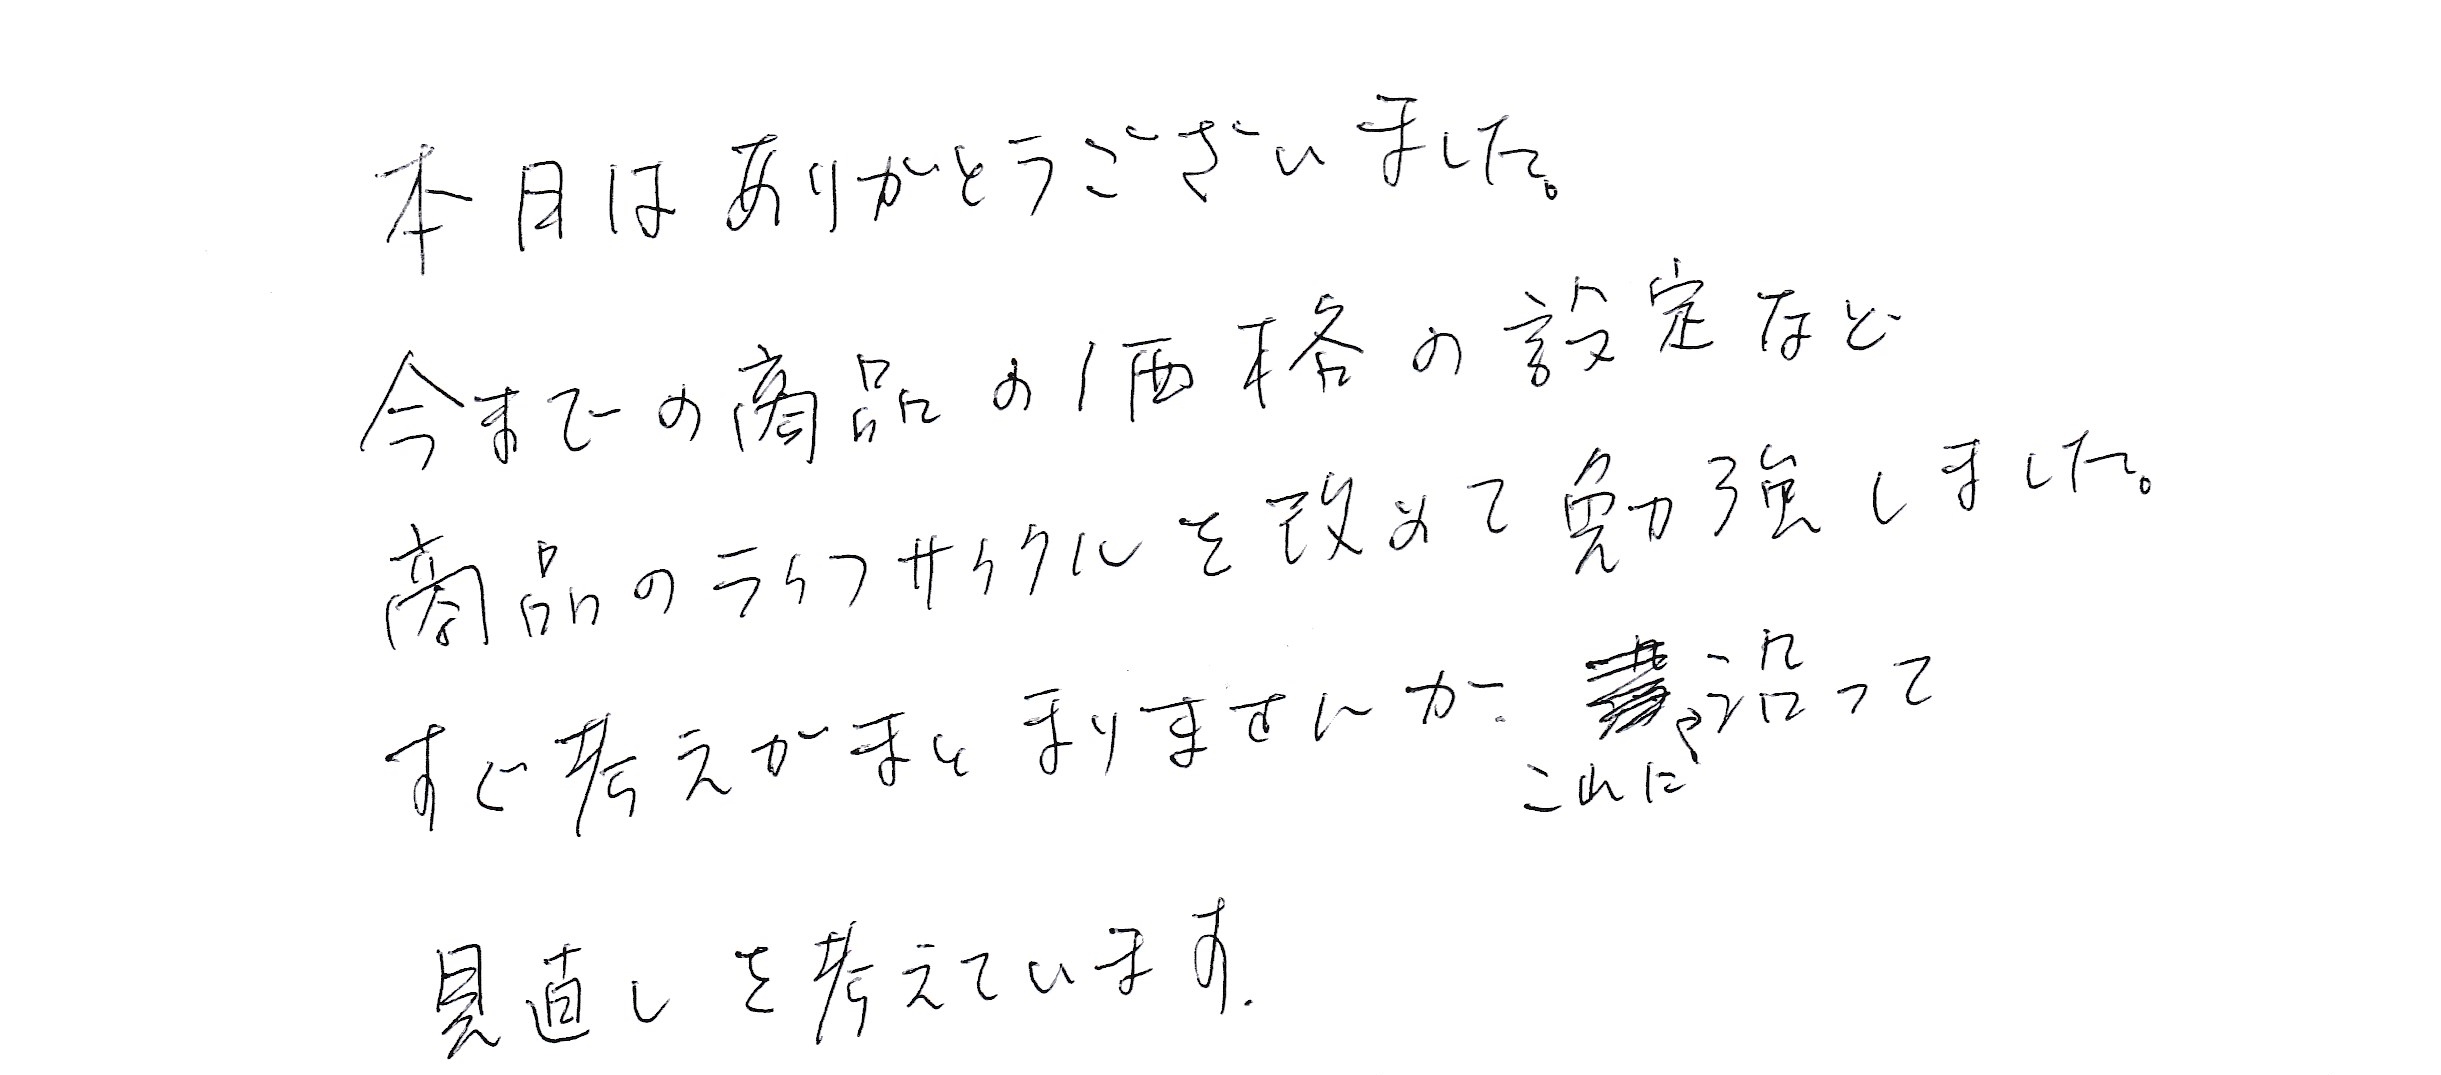 本日はありがとうございました。
今までの商品の価格の設定など
商品のライフサイクルを改めて勉強しました。
すぐ考えがまとまりませんが、これに沿って
見直しを考えています.